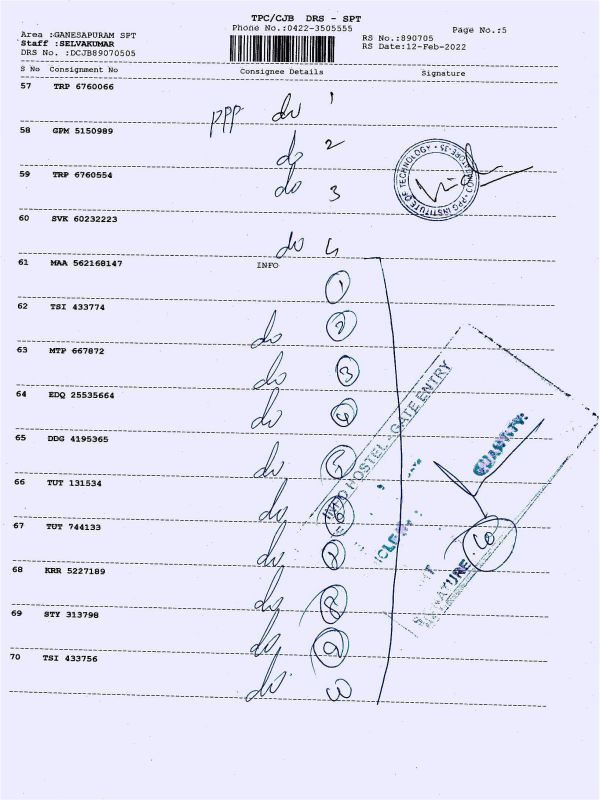 TPC/CJB DRS - SPT
Phone No.:0422-3505555
Page No.:5
Area :GANESAPURAM SPT
Staff :SELVAKUMAR
DRS No. :DCJB89070505
RS No.:890705
RS Date:12-Feb-2022
S No Consignment No Consignee Details Signature
57 TRP 6760066
PPP do 1
58 GPM 5150989
do 2
59 TRP 6760554
do 3
60 SVK 60232223
do 4
61 MAA 562168147 INFO
1
62 TSI 433774
do 2
63 MTP 667872
do 3
64 EDQ 25535664
do 4
65 DDG 4195365
do 5
66 TUT 131534
do 6
67 TUT 744133
do 7
68 KRR 5227189
do 8
69 STY 313798
do 9
70 TSI 433756
do 10
PPG INSTITUTE OF TECHNOLOGY
INFO HOSTEL - GATE ENTRY
QUANTITY:
SIGNATURE
10